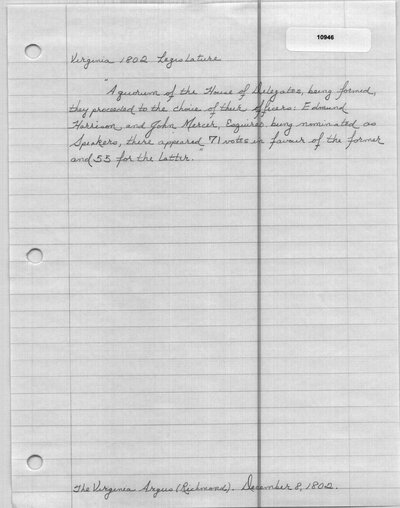 10946
Virginia 1802 Legislature
"A quorum of the House of Delegates, being formed,
they proceeded to the choice of their officers: Edmund
Harrison, and John Mercer, Esquires. being nominated as
Speakers, there appeared 71 votes in favour of the former
and 55 for the latter."
The Virginia Argus (Richmond). December 8, 1802.